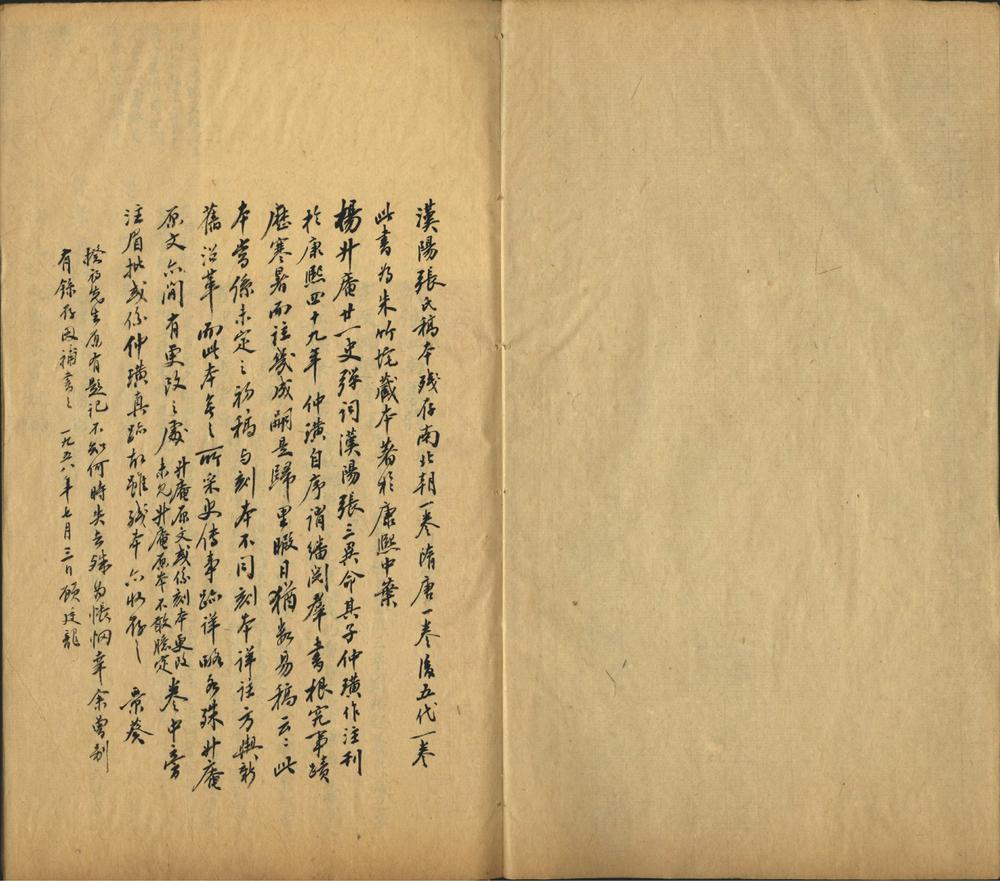 漢陽張氏稿本殘存南北朝一卷隋唐一卷後五代一卷
此書為朱竹垞藏本著於康熙中葉
楊升庵廿一史彈詞漢陽張三異命其子仲璜作注刊
於康熙四十九年仲璜自序謂繙閱羣書根究事蹟
歷寒暑而注幾成嗣是歸里暇日猶數易稿云云此
本當係未定之初稿与刻本不同刻本詳注方輿新
舊沿革而此本無之所采史傳事跡詳略各殊升庵
原文亦間有更改之處升庵原文或係刻本更改未見升庵原本不敢臆定卷中旁
注眉批或係仲璜真跡故雖殘本亦收存之 景葵
揆初先生原有題記不知何時失去殊為悵惘幸余曾別
有錄存因補書之 一九五八年七月三日顧廷龍